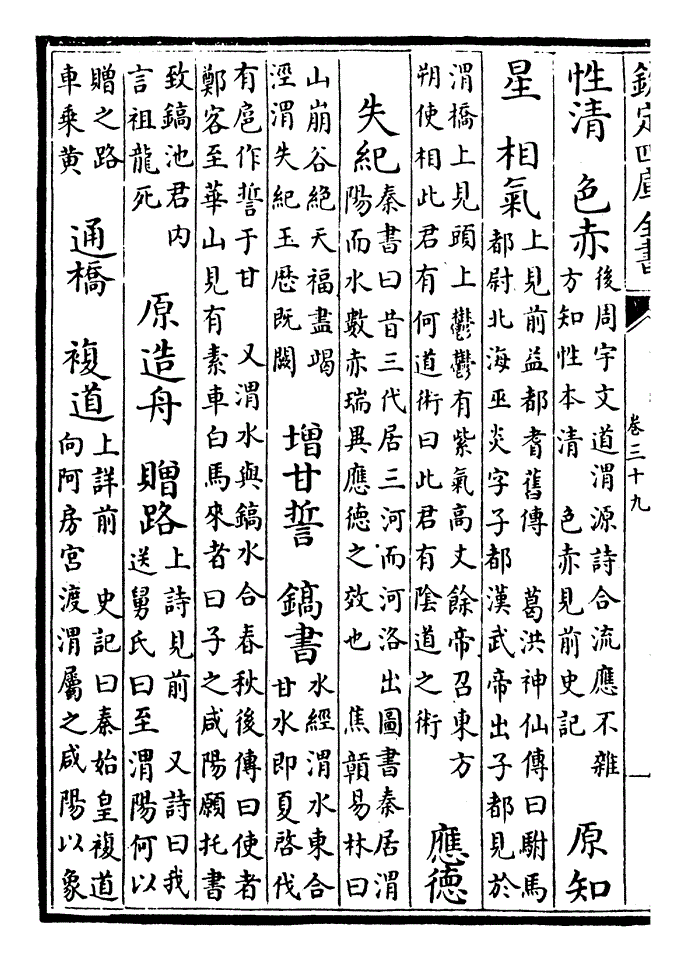 欽定四庫全書
卷三十九
性清　色赤後周宇文道渭源詩合流應不雜
方知性本清　色赤見前史記　原知
星　相氣上見前益都耆舊傳　葛洪神仙傳曰駙馬
都尉北海巫炎字子都漢武帝出子都見於
渭橋上見頭上鬱鬱有紫氣高丈餘帝召東方
朔使相此君有何道術曰此君有陰道之術　應德
失紀秦書曰昔三代居三河而河洛出圖書秦居渭
陽而水數赤瑞異應德之效也　焦贛易林曰
山崩谷絶天福盡竭
涇渭失紀玉厯既闕　增甘誓　鎬書水經渭水東合
甘水即夏啓伐
有扈作誓于甘　又渭水與鎬水合春秋後傳曰使者
鄭客至華山見有素車白馬來者曰子之咸陽願托書
致鎬池君内
言祖龍死　原造舟　贈路上詩見前　又詩曰我
送舅氏曰至渭陽何以
贈之路
車乘黄　通橋　複道上詳前　史記曰秦始皇複道
向阿房宫渡渭屬之咸陽以象